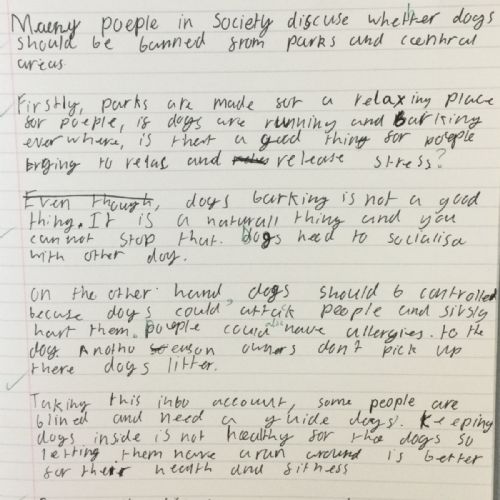 Maeny poeple in society discuse whether dogs
should be banned from parks and central
areas
Firstly, parks are made for a relaxing place
for poeple, is dogs are running and barking
everwhere, is that a good thing for poeple
trying to relas and release stress?
Even though, dogs barking is not a good
thing. It is a naturall thing and you
cannot stop that. Dogs need to socialisa
with other dog.
On the other hand, dogs should b controlled
because dogs could attack people and sirsly
hart them. Poeple could have allergies. to the
dog Anothu reason owners don't pick up
there dogs litter.
Taking this into account, some people are
blined and need a guide dogs. Keeping
dogs inside is not healthy for the dogs so
letting them have a run around is better
for their health and fitness